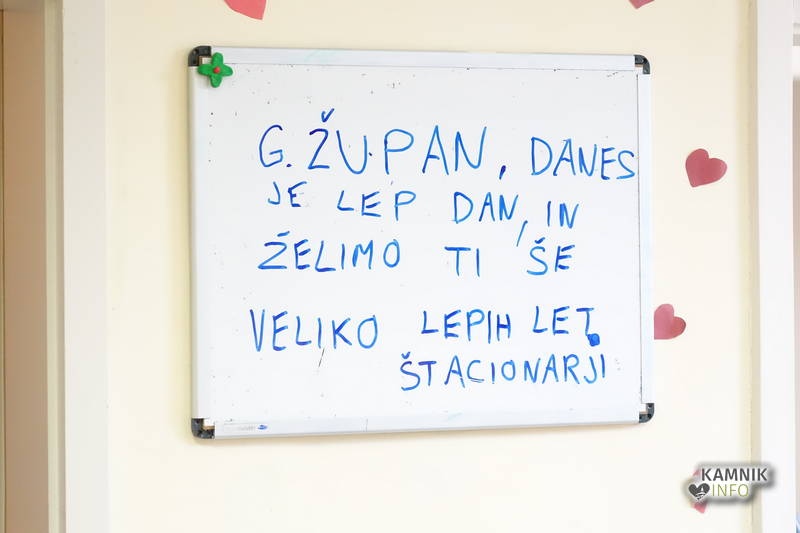 G. ŽUPAN, DANES
JE LEP DAN, IN
ŽELIMO TI ŠE
VELIKO LEPIH LET.
ŠTACIONARJI
KAMNIK
INFO